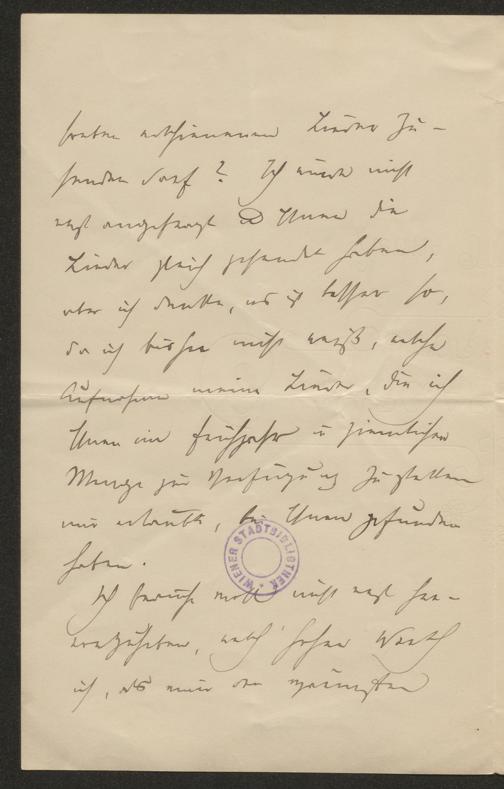 soeben erschienenen Lieder zu-
senden darf? Ich würde nicht
erst angefragt & Ihnen die
Lieder gleich gesendet haben,
aber ich denke, es ist besser so,
da ich bisher nicht weiß, welche
Aufnahme meine Lieder, die ich
Ihnen im Frühjahr in ziemlicher
Menge zur Verfügung zu stellen
mir erlaubte, bei Ihnen gefunden
haben.
Ich brauche wohl nicht erst her-
vorzuheben, welch' hohen Werth
ich, als einer der
WIENER STADTBIBLIOTHEK